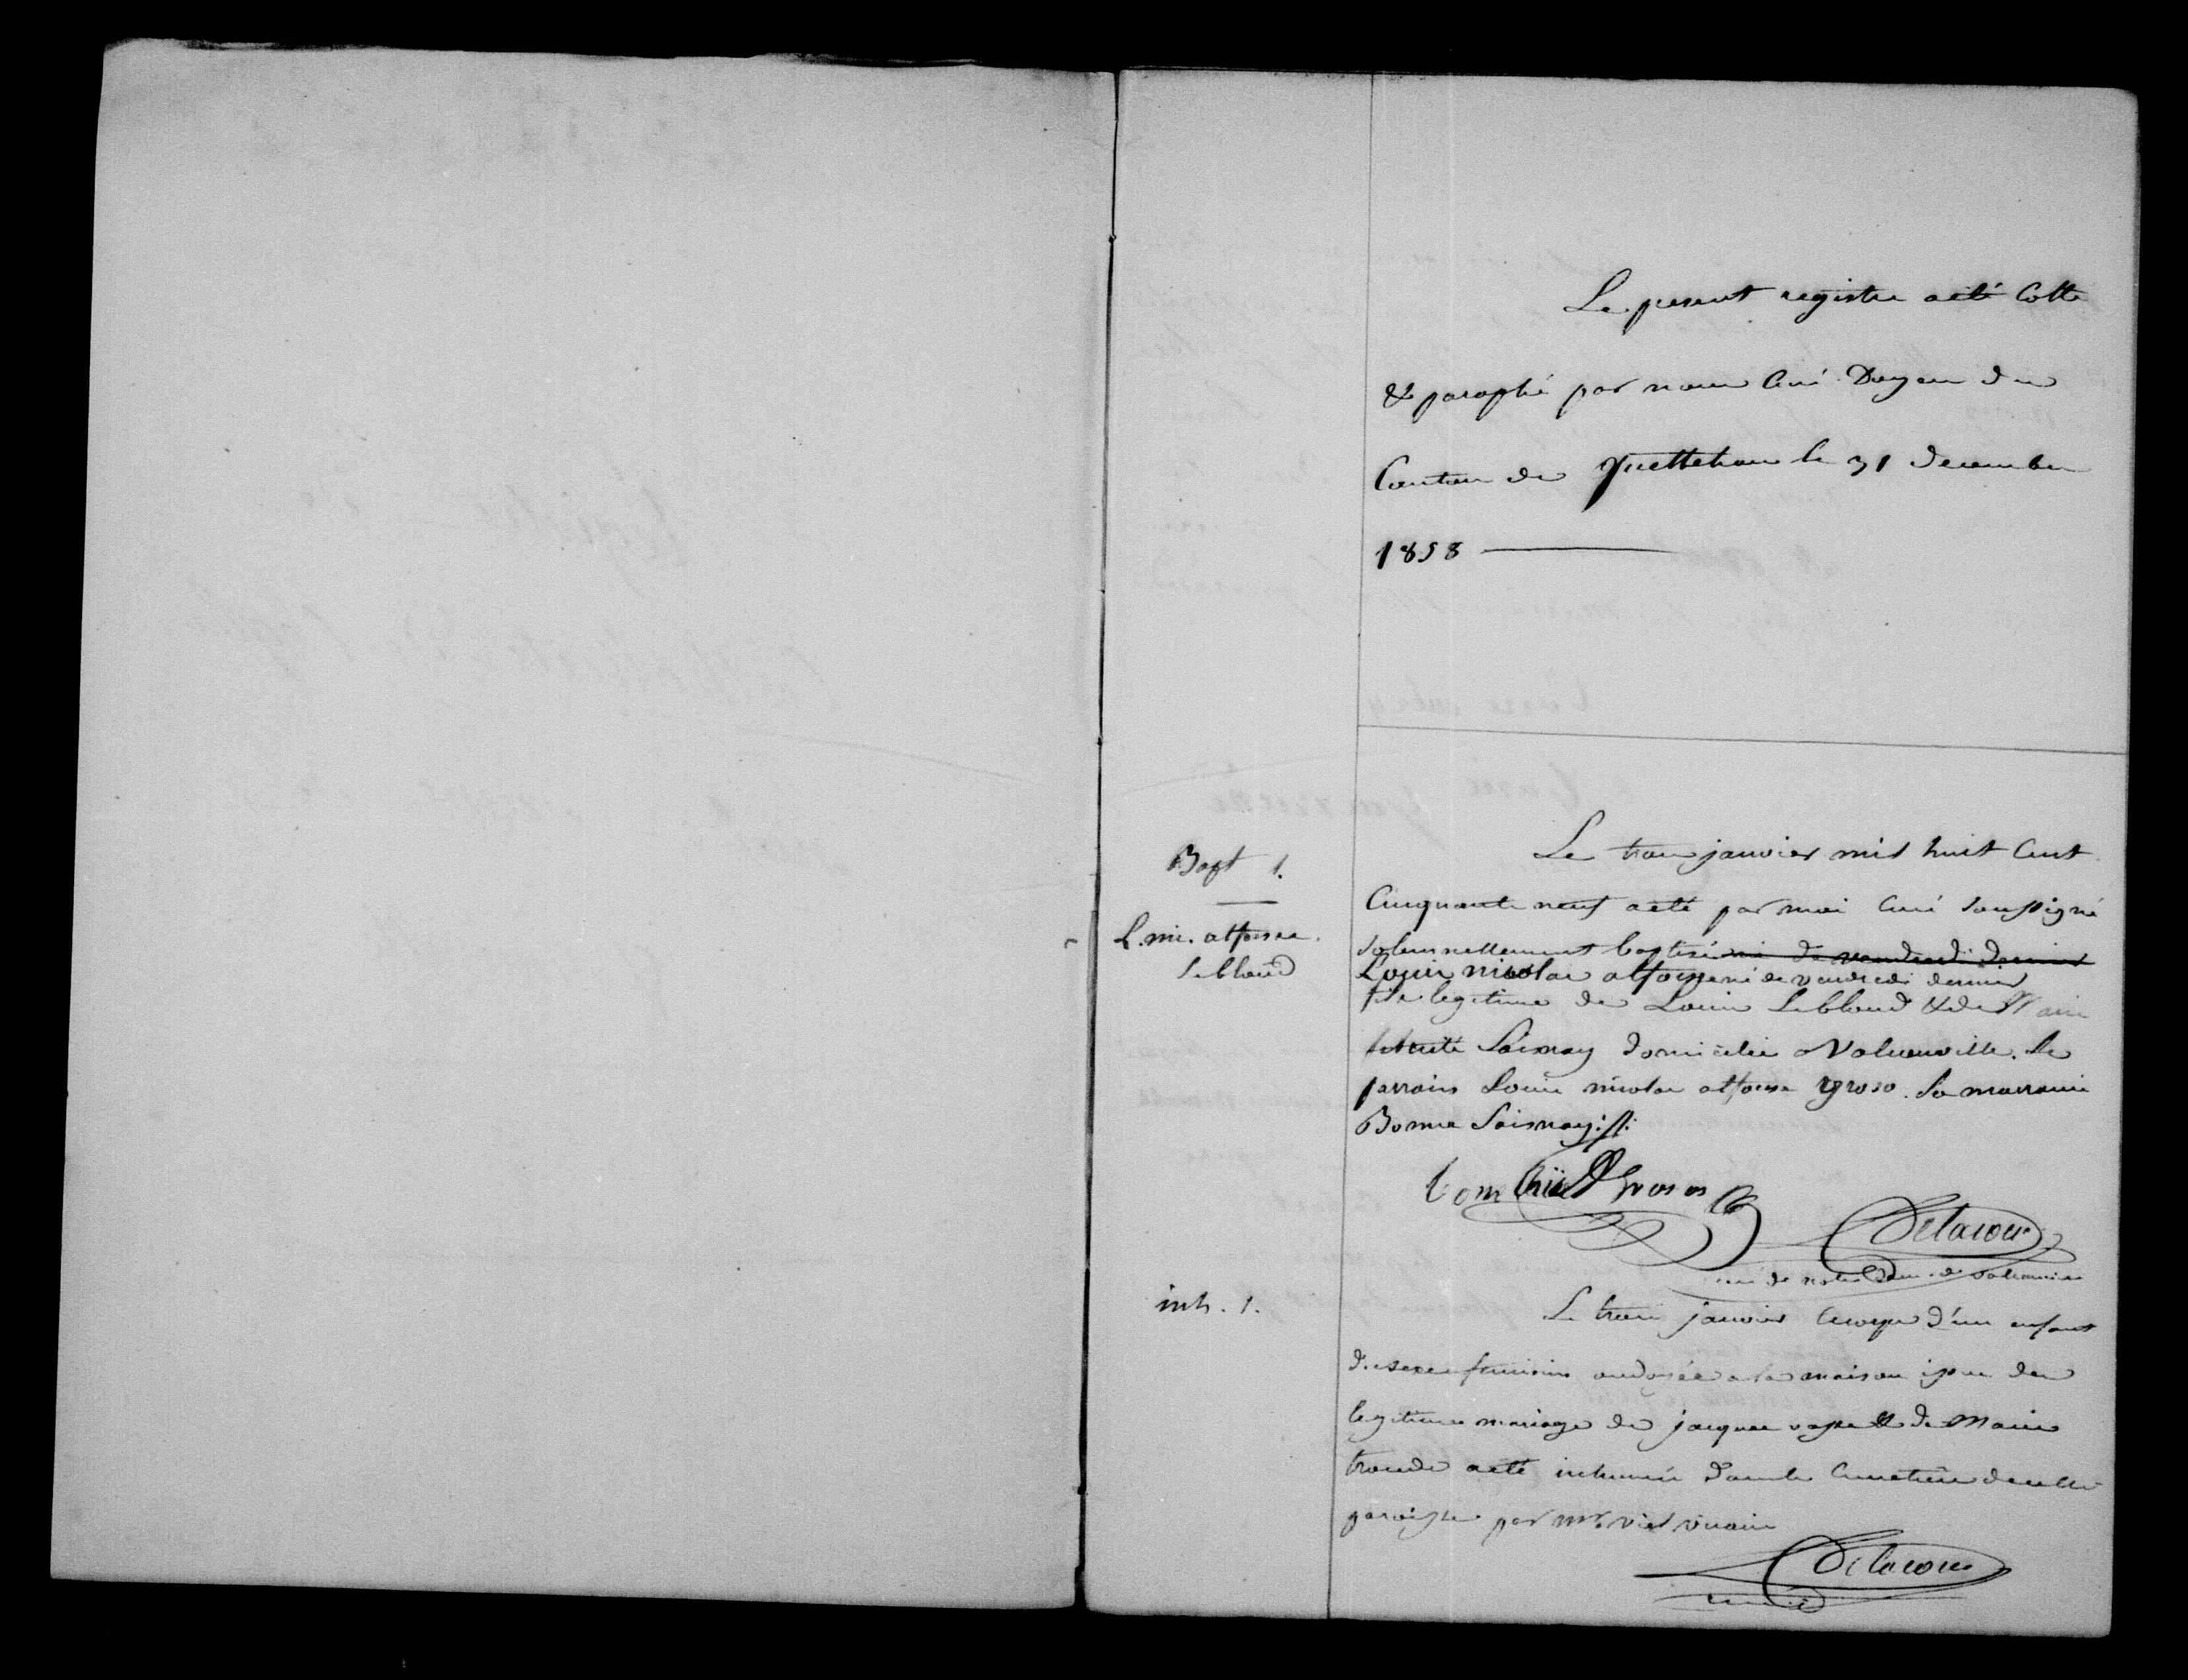 Le present registre a été Cotté
& paraphé par nous Curé Doyen du
Canton de Quettehou le 31 decembre
1858
Bapt 1.
L. nic. alfonse
Leblond
Le trois janvier mil huit Cent
Cinquante neuf a été par moi Curé soussigné
solennellement baptisé né de vendredi dernier
Louis nicolas alfonse né de vendredi dernier
fils legitime de Louis Leblond & de Marie
domicilié a Valcanville. Le
parrain Louis nicolas alfonse groso. La marraine
Bonne
Delacour
curé de notre Dame de
inh. 1.
Le trois janvier le corps d'un enfant
du sexe feminin ondoyée a la maison issue du
legitime mariage de jacques vasse & de Marie
troude a été inhumée dans le Cimetière de cette
paroisse par mr. viel vicaire
Delacour
curé